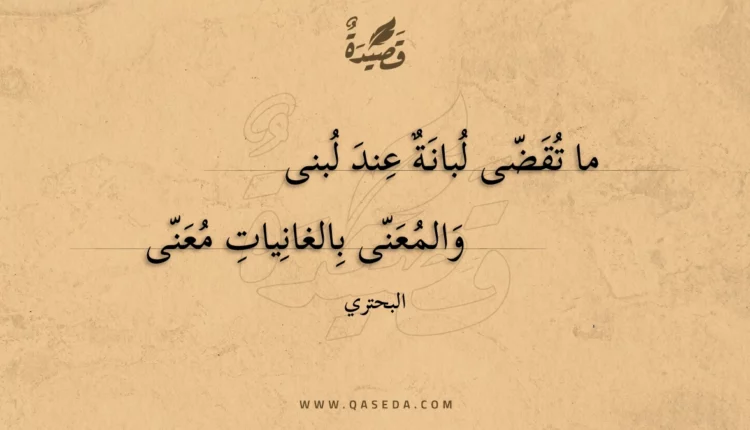 قَصِيدَةٌ
ما تُقَضّى لُبانَةٌ عِندَ لُبنى
وَالمُعَنّى بِالغانِياتِ مُعَنّى
البحتري
WWW.QASEDA.COM